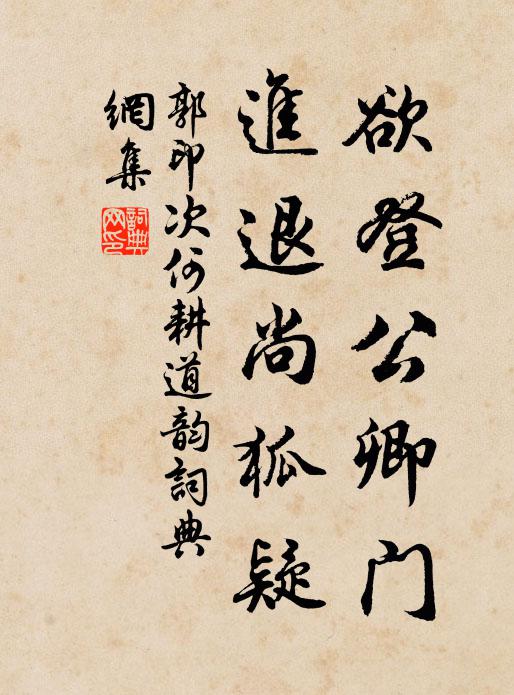 欲登公卿門
進退尚狐疑
郭印次何耕道韵詞典
網集
詞典
网印